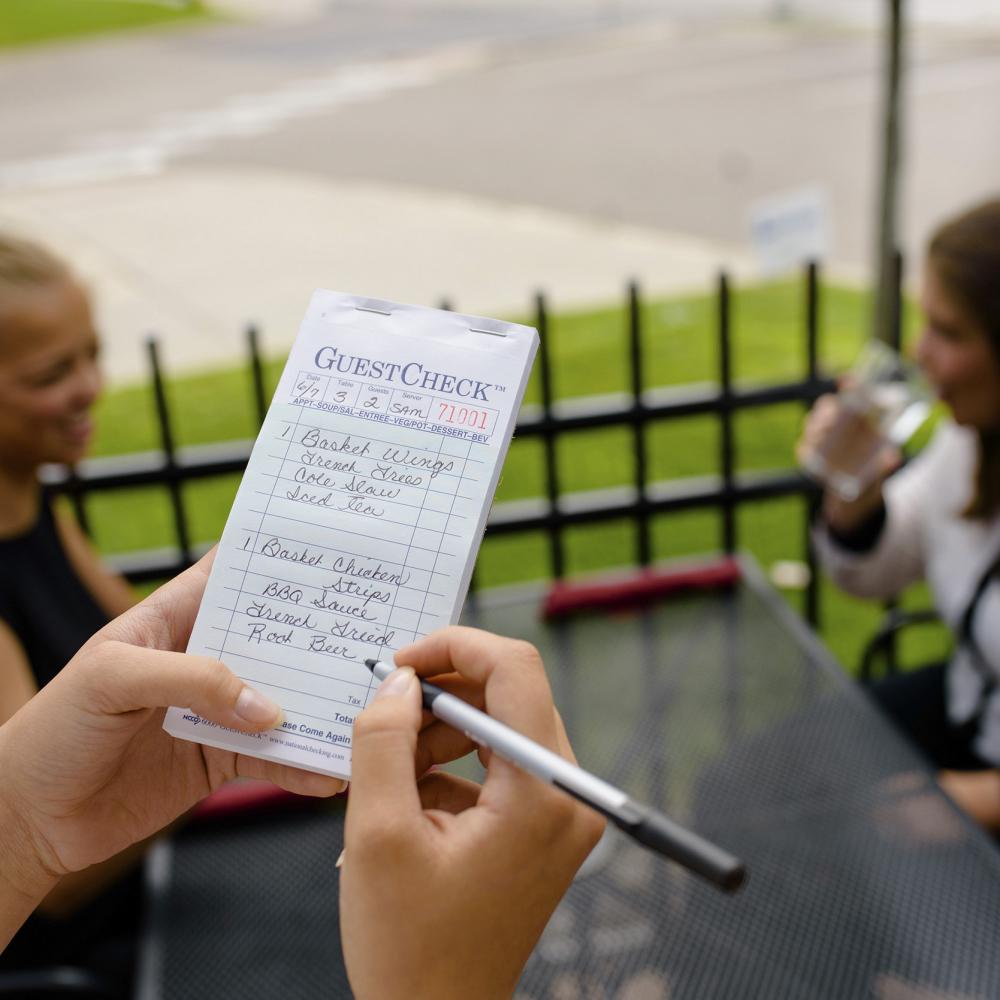 GUESTCHECK™
Date Table Guests Server
6/7 3 2 SAM 71001
APPT-SOUP/SAL-ENTREE-VEG/POT-DESSERT-BEV
1 Basket Wings
French Frees
Cole Slaw
Iced Tea
1 Basket Chicken
Strips
BBQ Sauce
French Fried
Root Beer
Tax
Total
ase Come Again
www.nationalchecking.com